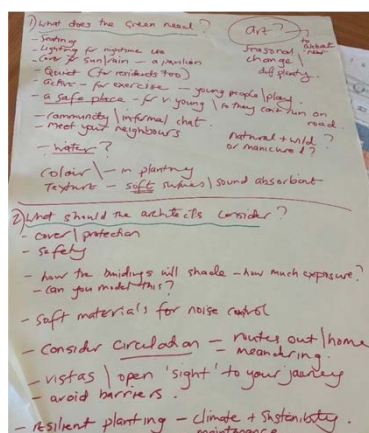 1) What does the Green need?
- Seating
- Lighting for nightime use
- Cover for sun/rain - a pavilion
- Quiet (for residents too)
- active - for exercise - young people/play.
- a safe place - for v. young / so they can't run on road.
- community / informal chat.
- meet your neighbours
- water?
Colour \ - in planting
Texture - soft surfaces / sound absorbent
art?
to celebrate
Seasonal change / diff planting.
natural + wild?
or manicured?
2) What should the architects consider?
- cover / protection
- Safety
- how the buildings will shade - how much exposure?
- can you model this?
- soft materials for noise control
- Consider circulation - routes out / home
- meandering.
- vistas / open 'sight' to your journey
- avoid barriers.
- resilient planting - climate + sustainability.
maintenance